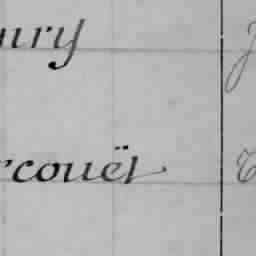 ury
rcouët